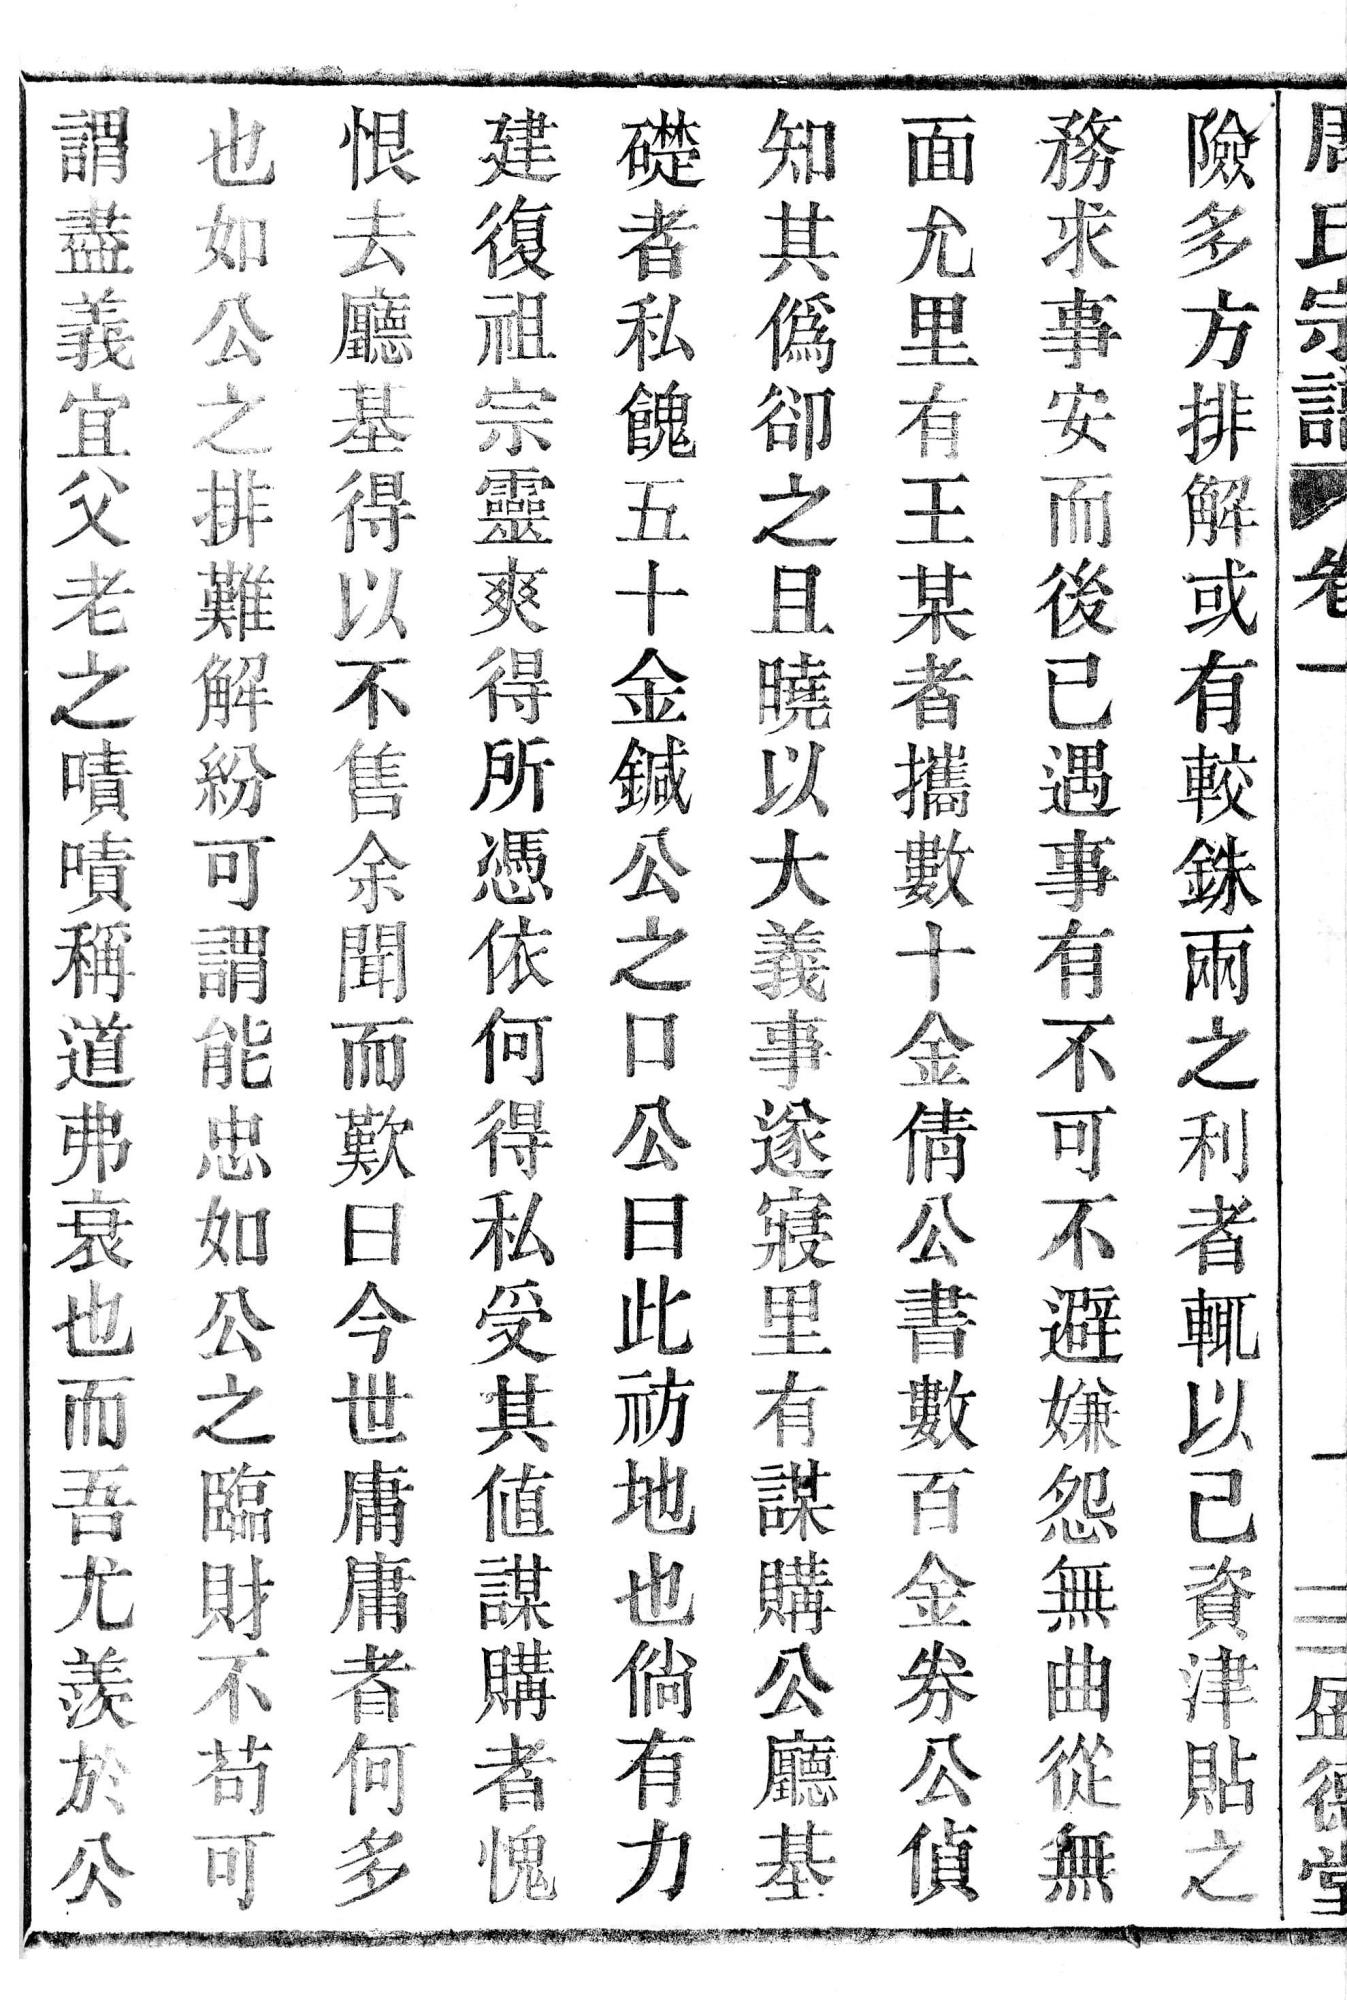 險多方排解或有較銖兩之利者輒以己資津貼之
務求事安而後已遇事有不可不避嫌怨無曲從無
面允里有王某者攜數十金倩公書數百金券公偵
知其僞卻之且曉以大義事遂寢里有謀購公廳基
礎者私餽五十金鍼公之口公曰此祊地也倘有力
建復祖宗靈爽得所憑依何得私受其値謀購者愧
恨去廳基得以不售余聞而歎曰今世庸庸者何多
也如公之排難解紛可謂能忠如公之臨財不苟可
謂盡義宜父老之嘖嘖稱道弗衰也而吾尤羨於公